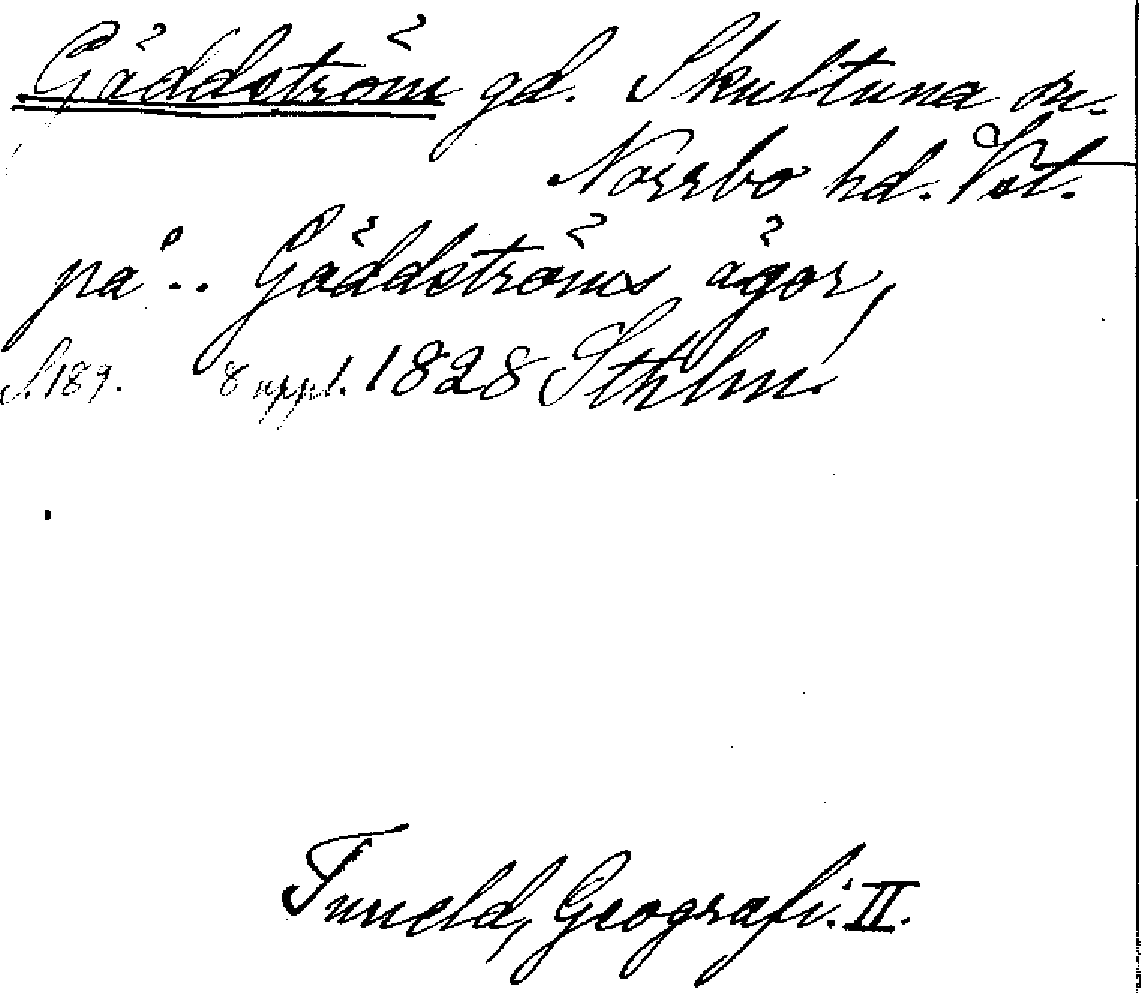 Gäddström gd. Skultuna sn.
Norrbo hd. Vstl.
på .. Gäddströms ägor,
S. 189. 8 uppl. 1828 Sthlm.
Tuneld, Geografi. II.